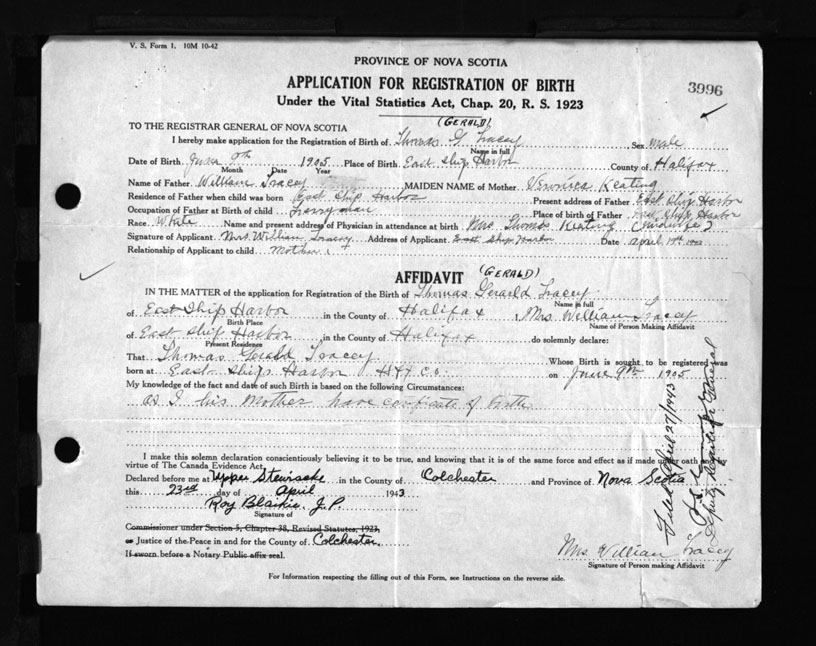 V. S. Form 1. 10M 10-42
PROVINCE OF NOVA SCOTIA
APPLICATION FOR REGISTRATION OF BIRTH
3996
Under the Vital Statistics Act, Chap. 20, R. S. 1923
(GERALD)
TO THE REGISTRAR GENERAL OF NOVA SCOTIA
I hereby make application for the Registration of Birth of Thomas G Tracey Sex male
Name in full
Date of Birth June 9th 1905 Place of Birth East Ship Harbor County of Halifax
Month Date Year
Name of Father William Tracey MAIDEN NAME of Mother Veronica Keating
Residence of Father when child was born East Ship Harbor Present address of Father East Ship Harbor
Occupation of Father at Birth of child Place of birth of Father East Ship Harbor
Race White Name and present address of Physician in attendance at birth Mrs Thomas Keating
Signature of Applicant Mrs William Tracey Address of Applicant East Ship Harbor Date april 19th
Relationship of Applicant to child mother
AFFIDAVIT (GERALD)
IN THE MATTER of the application for Registration of the Birth of Thomas Gerarld Tracey
Name in full
of East Ship Harbor in the County of Halifax , Mrs William Tracey
Birth Place Name of Person Making Affidavit
of East Ship Harbor in the County of Halifax do solemnly declare:
Present Residence
That Thomas Gerald Tracey Whose Birth is sought to be registered was
born at East Ship Harbor Hfx Co. on June 9th 1905
My knowledge of the fact and date of such Birth is based on the following Circumstances:
as I his Mother have cerificate of Birth
I make this solemn declaration conscientiously believing it to be true, and knowing that it is of the same force and effect as if made under oath and by
virtue of The Canada Evidence Act,
Declared before me at Upper Stewiacke in the County of Colchester and Province of Nova Scotia
this 23rd day of April 1943
Roy Blaikie, J.P.
Signature of
Commissioner under Section 5, Chapter 38, Revised Statutes, 1923,
or Justice of the Peace in and for the County of Colchester
If sworn before a Notary Public affix seal.
Mrs William Tracey
Signature of Person making Affidavit
For Information respecting the filling out of this Form, see Instructions on the reverse side.
Filed April 27/1943
Deputy Registrar General